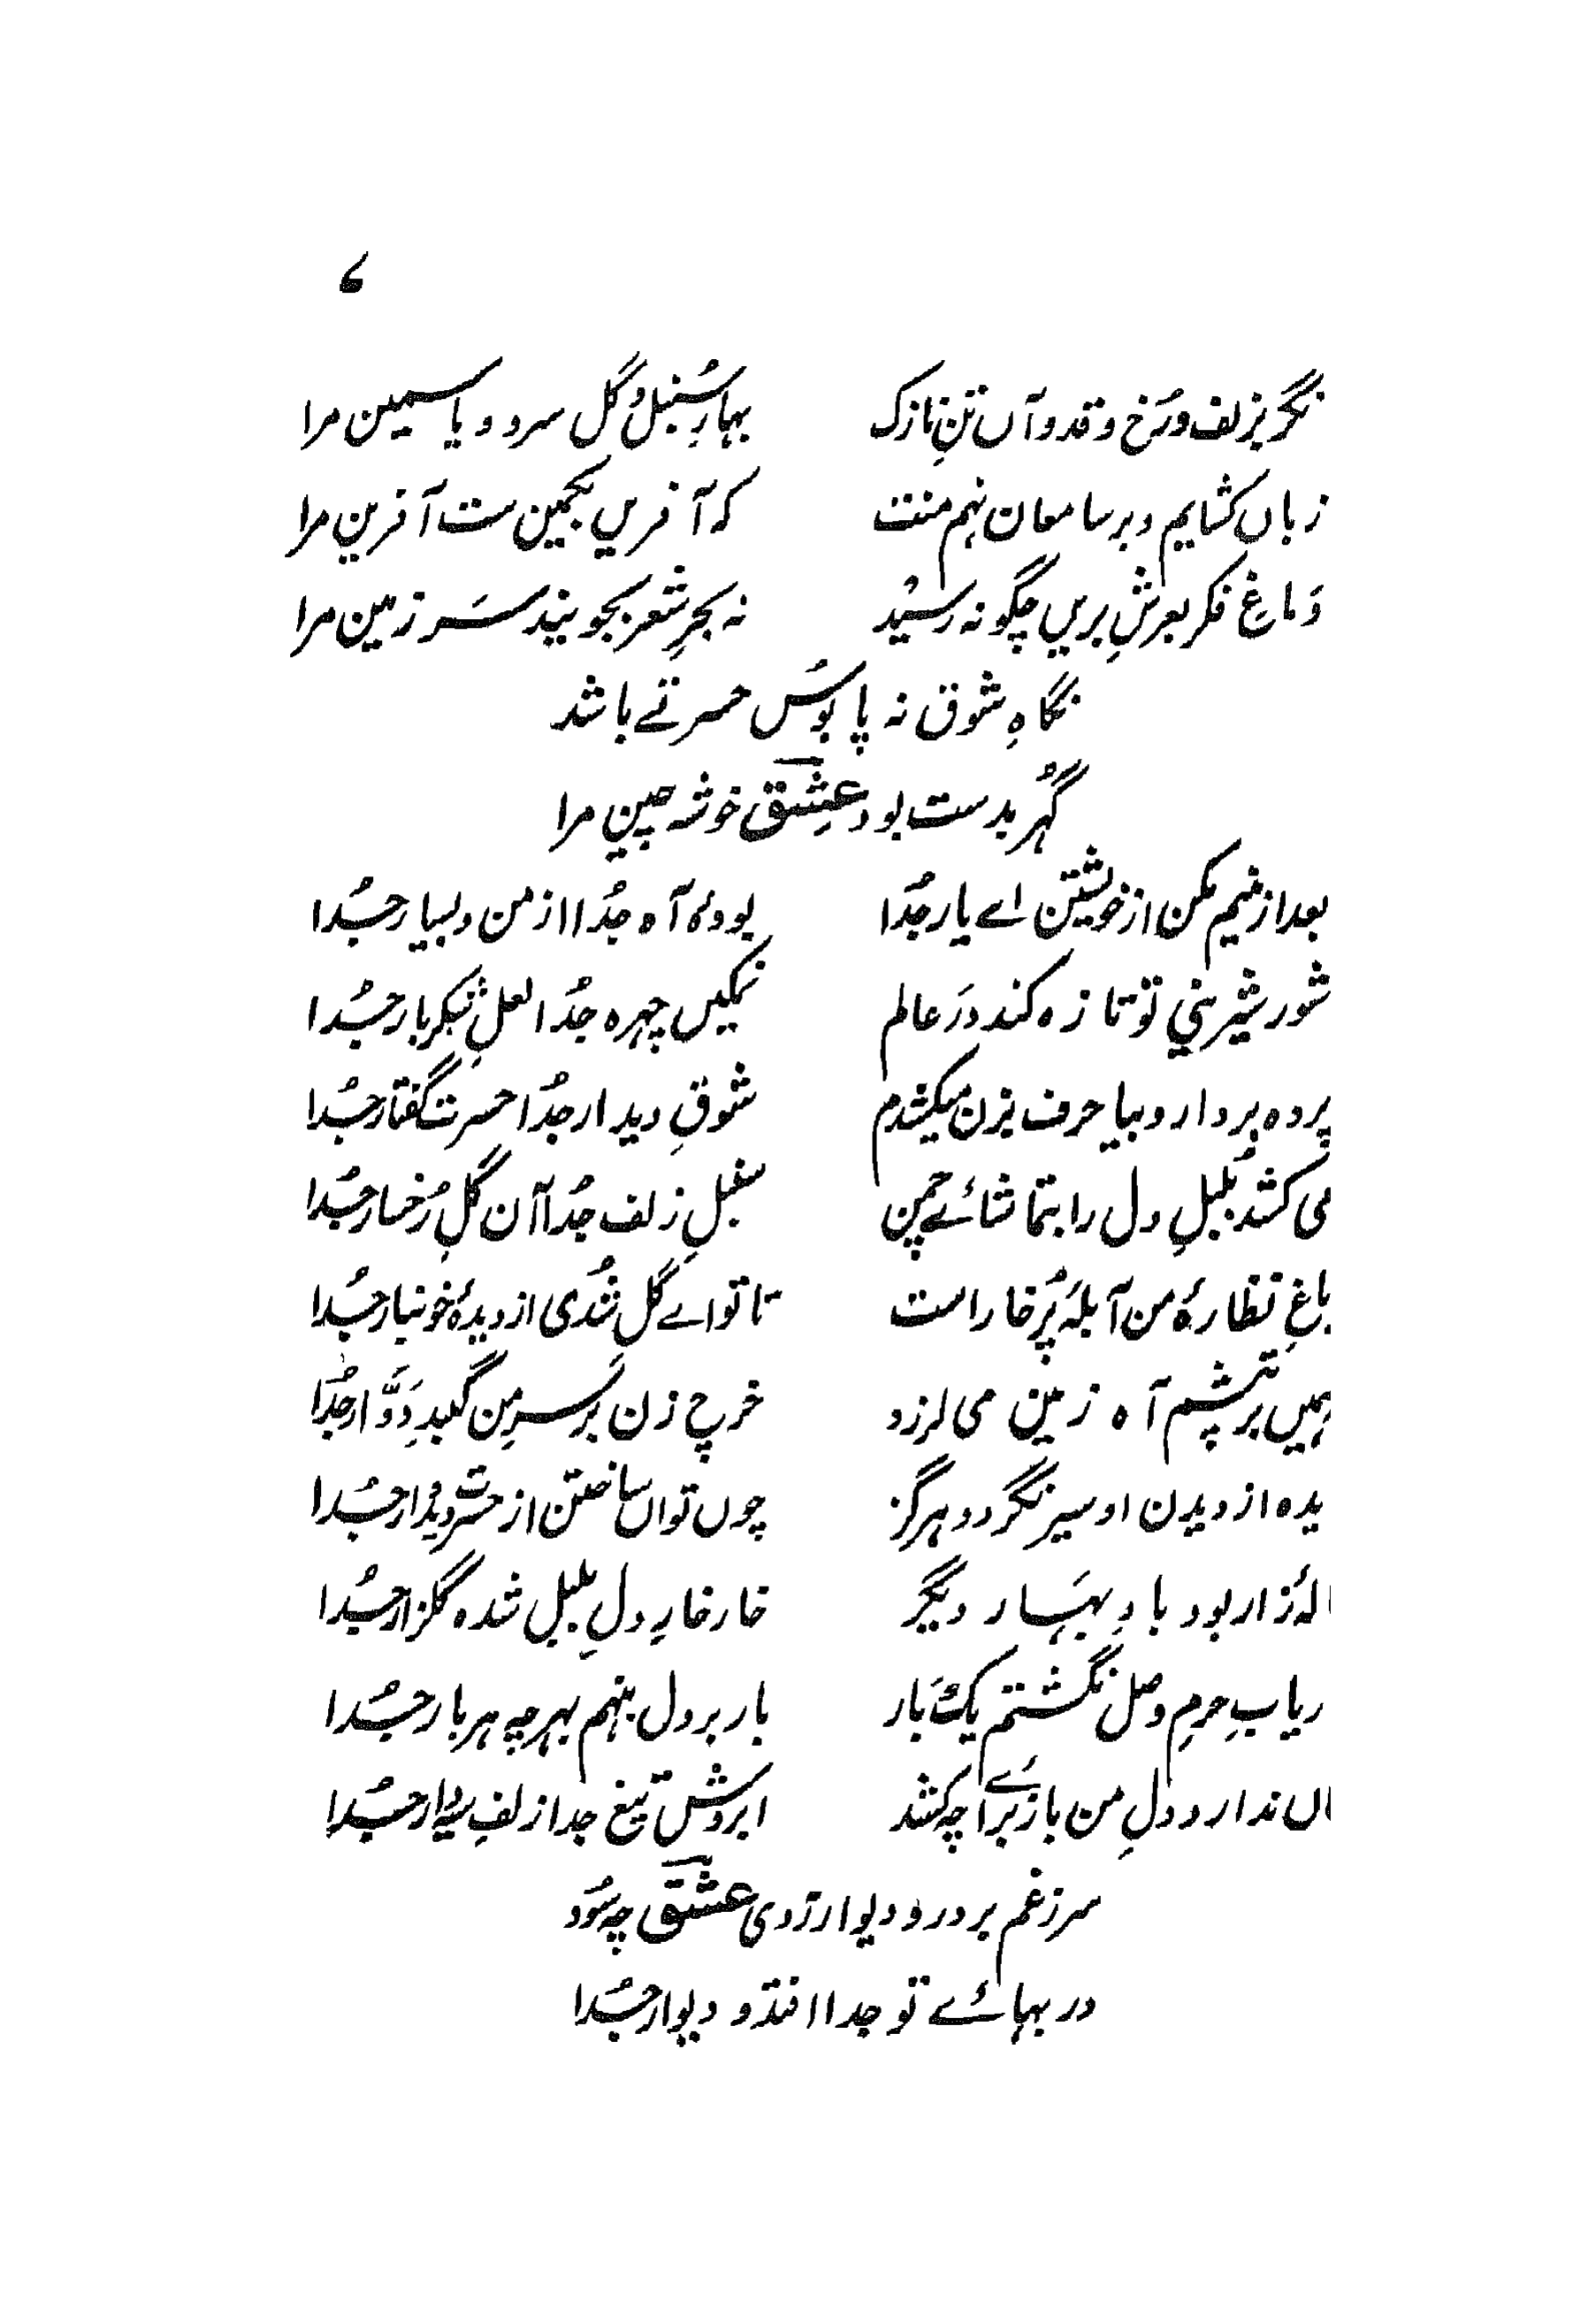 ۷
نگر بزلف و رُخ و قد و آں تنِ نازک بہارِ سُنبل و گل سرو و یاسمین مرا
زباں کشایم و بر سامعان نہم منت کہ آفریں بچمین ست آفرین مرا
دَماغ فکر بعرشِ بریں چگونہ رسیْد نہ بحرِ شعر بجویند سَر زمین مرا
نگاہِ شوق نہ پابوسُ حسرتے باشد
گُہر بدست بود عِشق خوشہ چین مرا
بعد ازینم مکن از خویشتن اے یار جُدا بودۂ آہ جُدا از من و بسیار جُدا
شور شیرینیِ تو تازہ کند درَ عالم نمکیں چہرہ جُدا لعلِ شکر بار جُدا
پردہ بردار و بیا حرف بزن میکشدم شوقِ دیدار جُدا حسرت گفتار جُدا
می کشد بُلبلِ دل را بتماشائے چمن سنبلِ زلف جُدا آن گلِ رُخسار جُدا
باغِ نظارۂ من آبلۂ پُر خار است تا تو اے گل شُدی از دیدۂ خونبار جُدا
ہمیں بر تپشم آہ زمین می لرزد خرچ زن بَر سرِ من گنبدِ دَوَّار جُدا
یدہ از دیدن او سیر نگردد ہرگز چوں تواں ساختن از حسرت دیدار جُدا
الۂ زار بود بادِ بہَار دیگر خار خارِ دلِ بلبل شدہ گلزار جُدا
ریابِ حرمِ وصل نگشتم یک بَار بار بر دل بنہم بہر چہ ہر بار جُدا
اں ندارد دلِ من باز برَائے چہ کشد ابروش تیغ جدا زلفِ سیہ دار جُدا
سر ز غم بر در و دیوار زدی عشق چہ سُود
در بہائے تو جدا افتد و دیوار جُدا